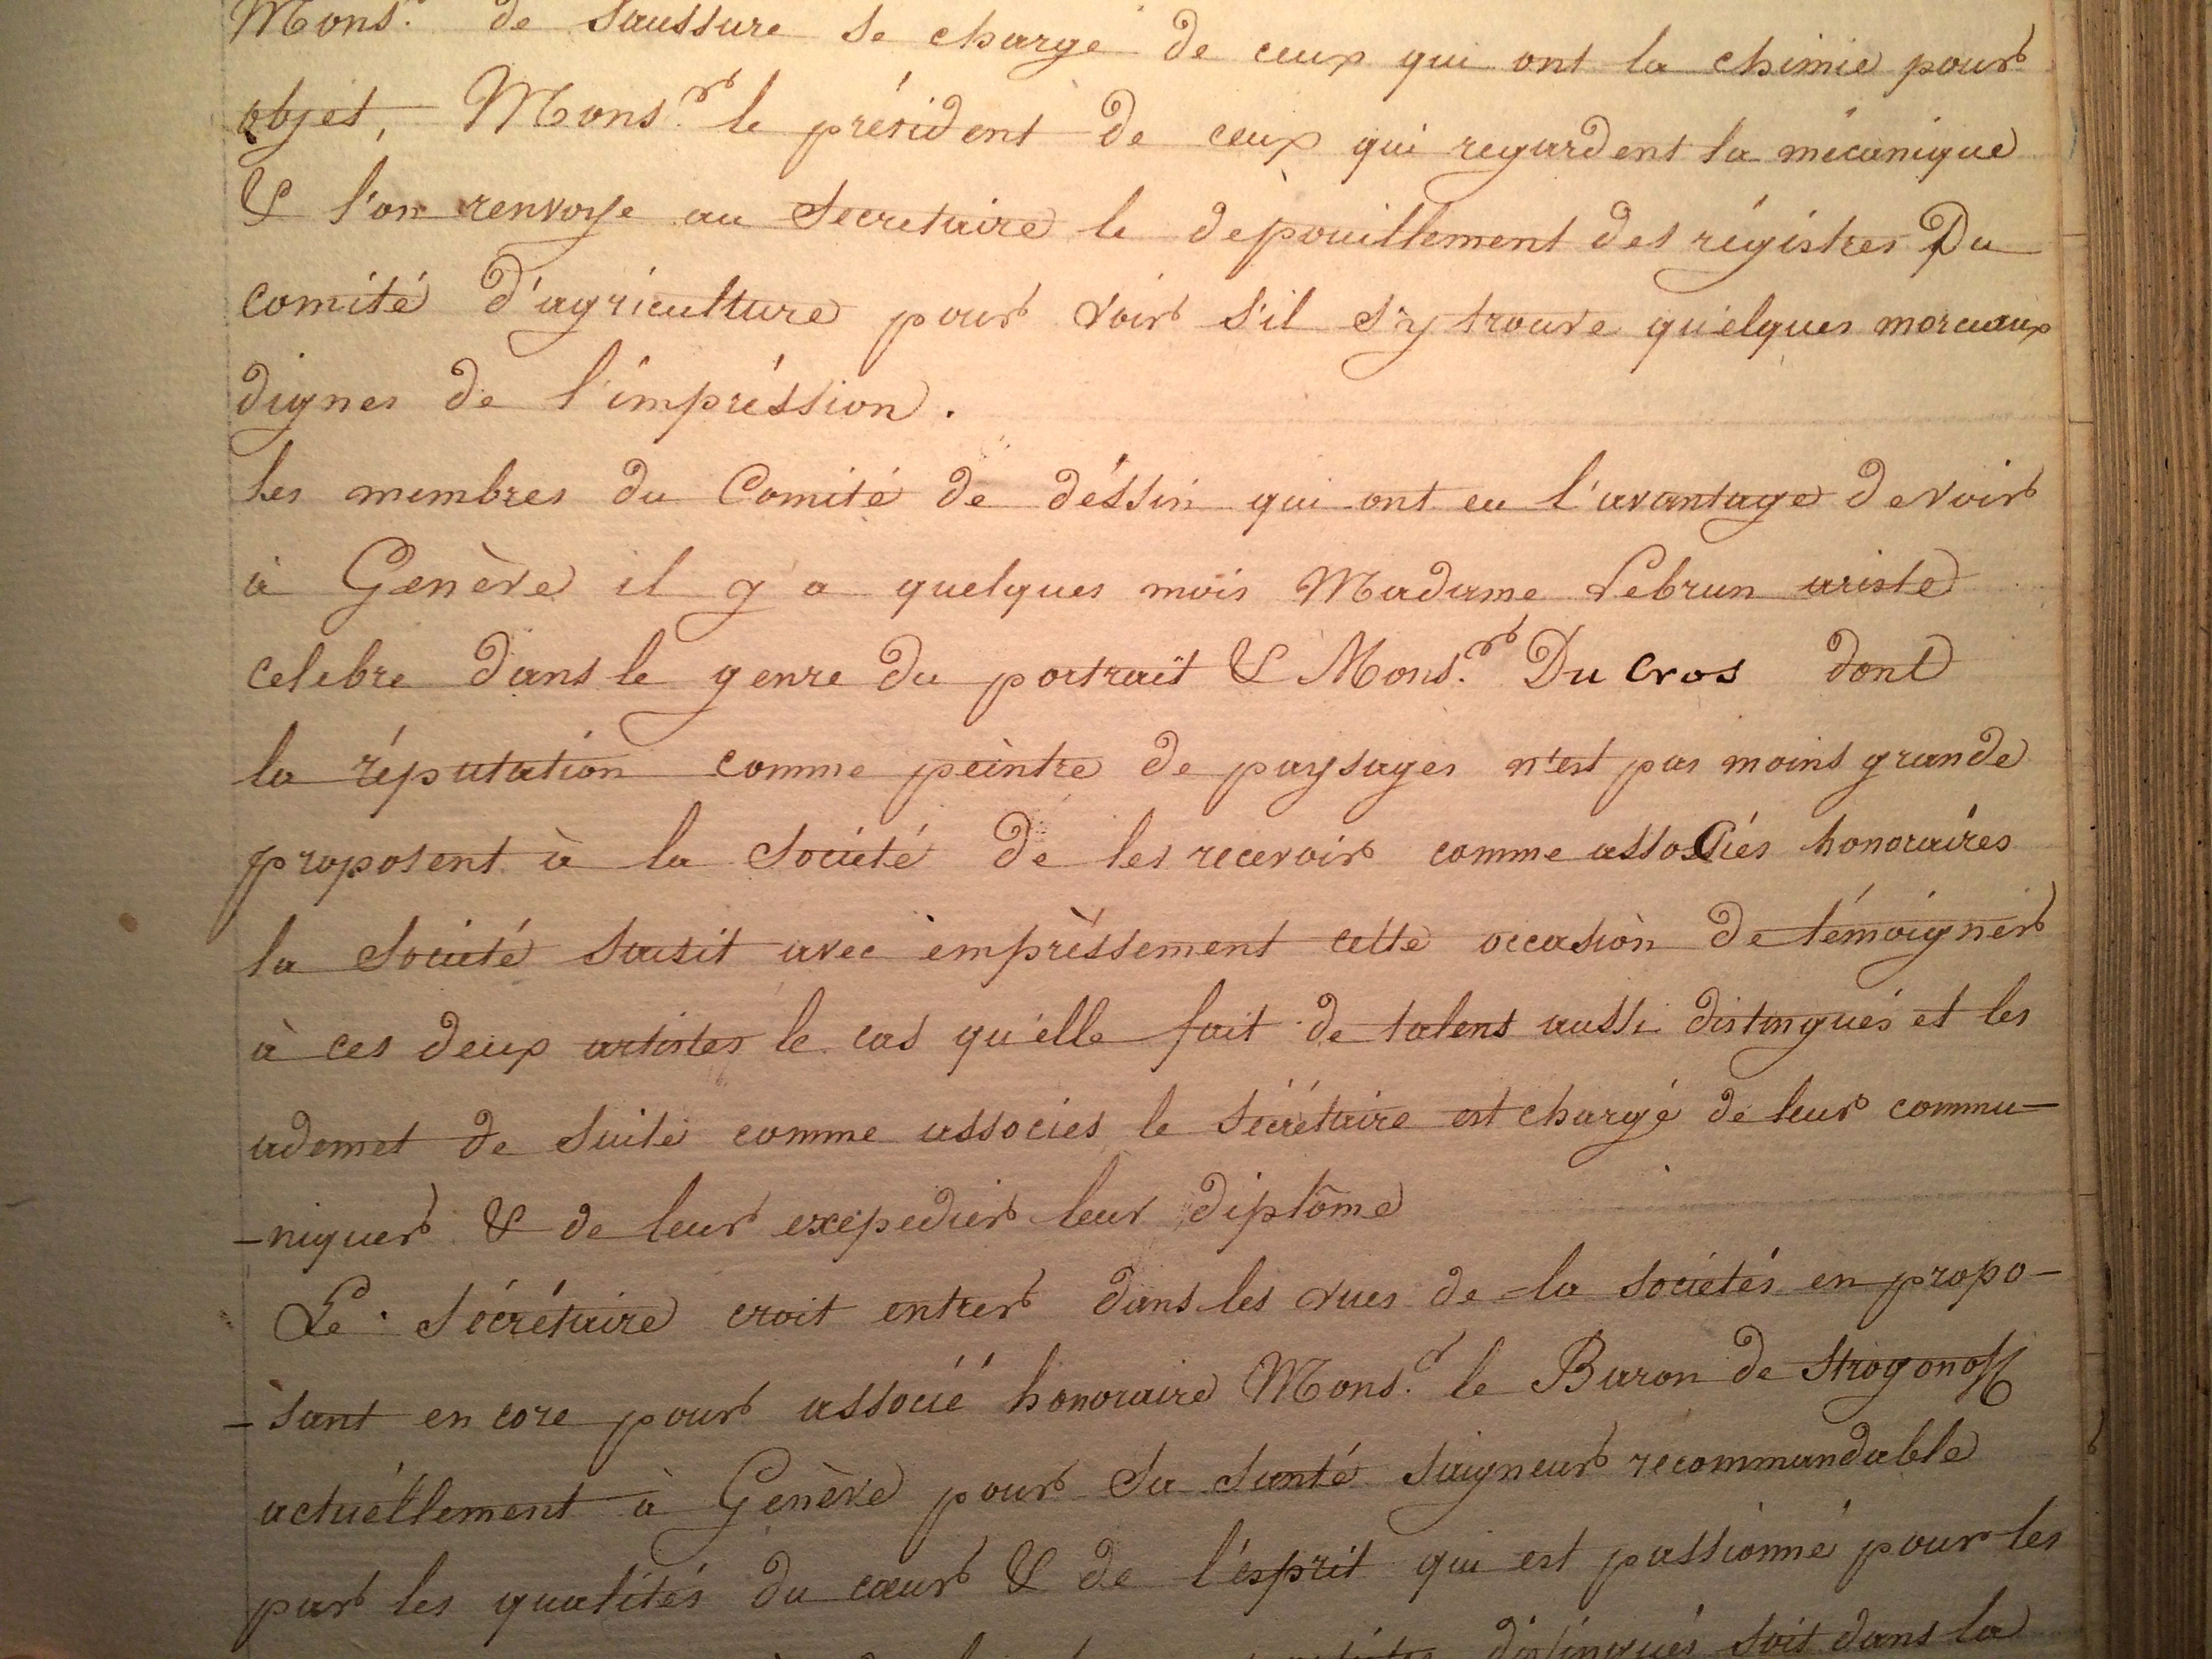 Mons.r de Saussure se charge de ceux qui ont la chimie pour
objet, Mons.r le président de ceux qui regardent la mécanique
& l'on renvoye au Secretaire le dépouillement des régistres Du
comité d'agriculture pour voir s'il s'y trouve quelques morceaux
dignes de l'impréssion.
les membres du Comité de déssin qui ont eu l'avantage de voir
à Genève il y a quelques mois Madame Lebrun ariste
celebre dans le genre du portrait & Mons.r Du Cros dont
la réputation comme peintre de paysages n'est pas moins grande
proposent à la Société de les recevoir comme associés honoraires
la Société saisit avec emprèssement cette occasion de témoigner
à ces deux artistes le cas qu'elle fait de talens aussi distingués et les
ademet de suite comme associes le sécrétaire est chargé de leur commu-
-niquer & de leur exepedier leur diplôme
Le Sécrétaire croit entrer dans les vues de la sociétés en propo-
-sant encore pour associé honoraire Mons.r le Baron de Strogonoff
actuéllement à Genève pour sa santé saigneur recommandable
par les qualités du cœur & de l'esprit qui est passionné pour les
distingués soit dans la